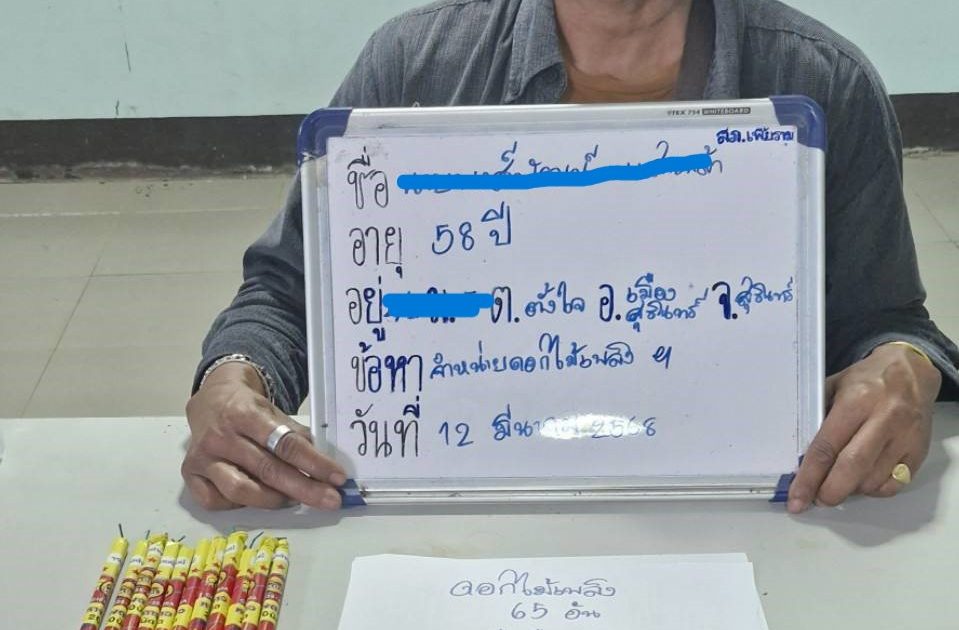 TEX 754 WHITEBOARD
สภ.เพี้ยราม
ชื่อ
อายุ 58 ปี
อยู่ ต.ตั้งใจ อ.เมืองสุรินทร์ จ.สุรินทร์
ข้อหา จำหน่ายดอกไม้เพลิง ฯ
วันที่ 12 มีนาคม 2568
ดอกไม้เพลิง
65 อัน